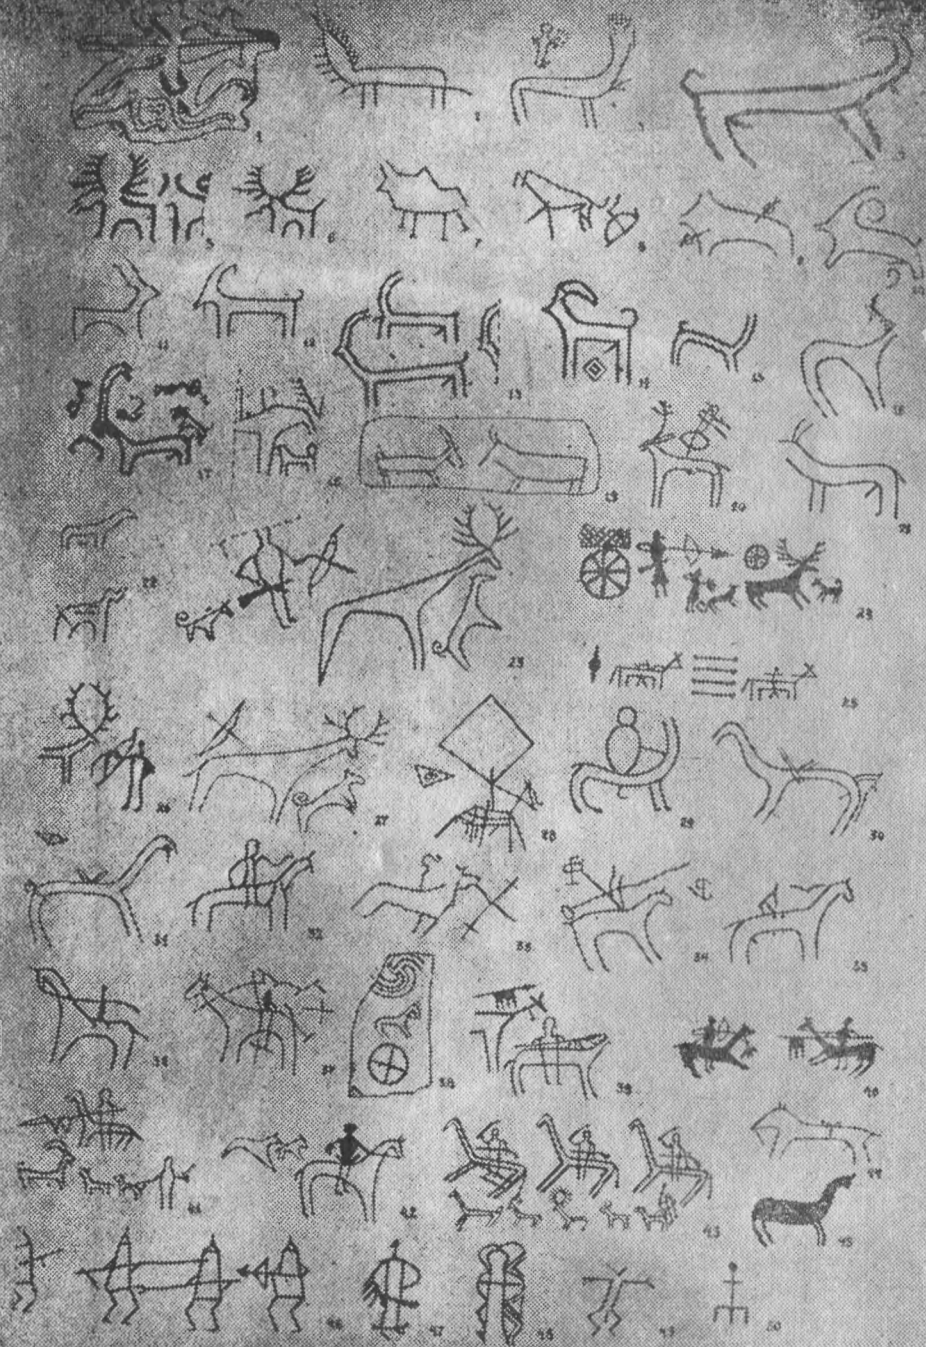 1 2 3
5 6 7 8 9 10
11 12 13 14 15 16
17 19 20 21
22 23 23 25
26 27 28 29 30
31 32 33 34 35
36 37 38 39 40
41 42 43 44 45
46 47 48 49 50